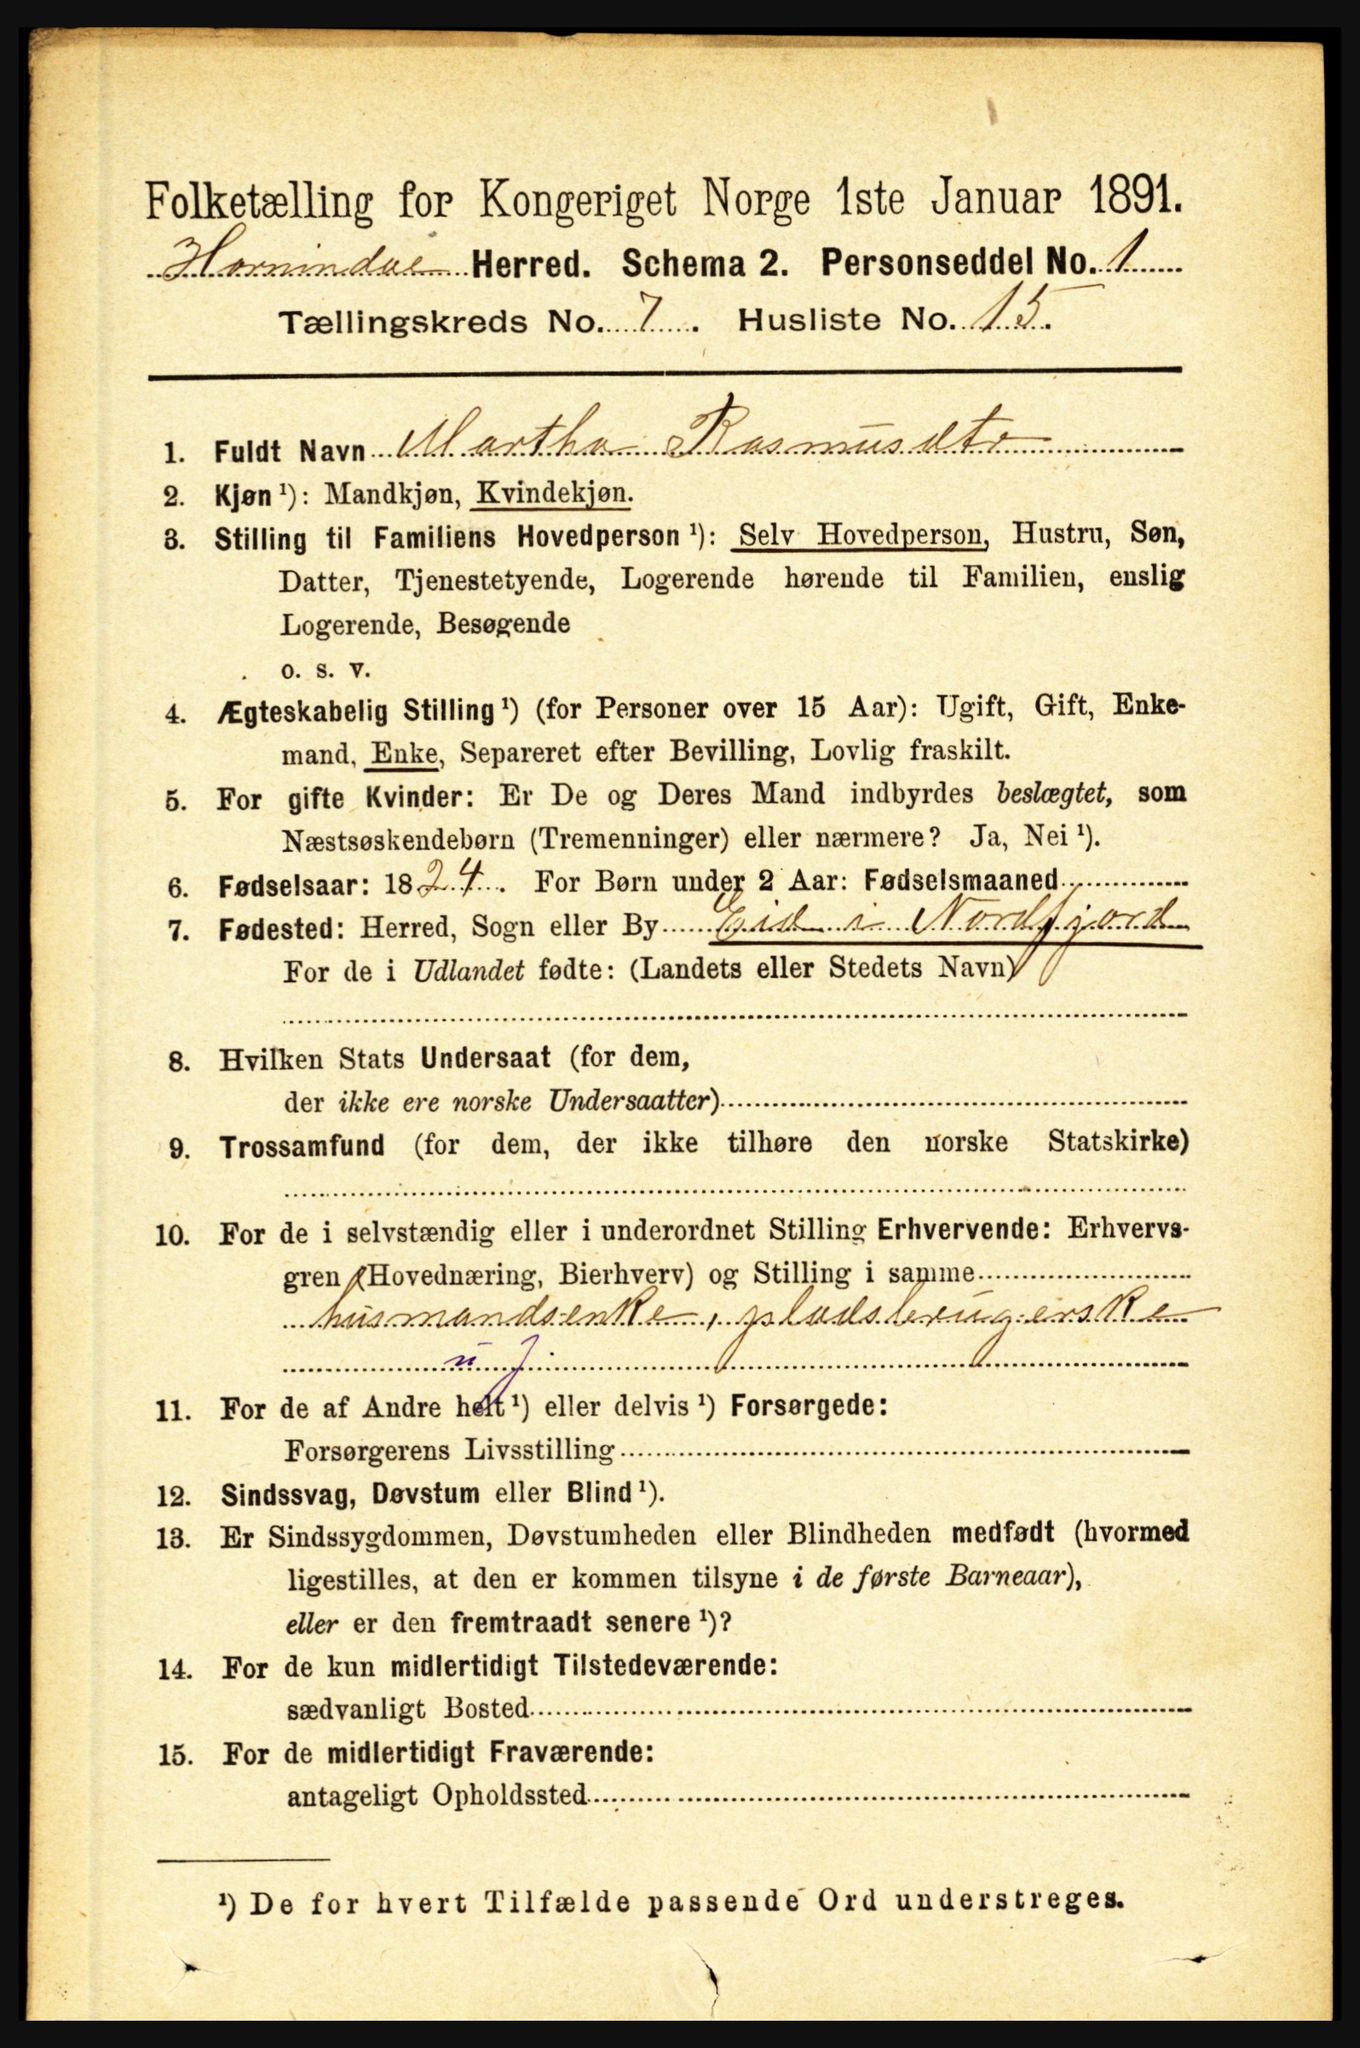 Folketælling for Kongeriget Norge 1ste Januar 1891.
Hornindal Herred. Schema 2. Personseddel No. 1
Tællingskreds No. 7. Husliste No. 15.
1. Fuldt Navn Martha Rasmusdtr
2. Kjøn ¹): Mandkjøn, Kvindekjøn.
3. Stilling til Familiens Hovedperson ¹): Selv Hovedperson, Hustru, Søn,
Datter, Tjenestetyende, Logerende hørende til Familien, enslig
Logerende, Besøgende
o. s. v.
4. Ægteskabelig Stilling ¹) (for Personer over 15 Aar): Ugift, Gift, Enke-
mand, Enke, Separeret efter Bevilling, Lovlig fraskilt.
5. For gifte Kvinder: Er De og Deres Mand indbyrdes beslægtet, som
Næstsøskendebørn (Tremenninger) eller nærmere? Ja, Nei ¹).
6. Fødselsaar: 1824. For Børn under 2 Aar: Fødselsmaaned
7. Fødested: Herred, Sogn eller By Eid i Nordfjord
For de i Udlandet fødte: (Landets eller Stedets Navn)
8. Hvilken Stats Undersaat (for dem,
der ikke ere norske Undersaatter)
9. Trossamfund (for dem, der ikke tilhøre den norske Statskirke)
10. For de i selvstændig eller i underordnet Stilling Erhvervende: Erhvervs-
gren (Hovednæring, Bierhverv) og Stilling i samme
husmandsenke, pladsbrugerske
u j
11. For de af Andre helt ¹) eller delvis ¹) Forsørgede:
Forsørgerens Livsstilling
12. Sindssvag, Døvstum eller Blind ¹).
13. Er Sindssygdommen, Døvstumheden eller Blindheden medfødt (hvormed
ligestilles, at den er kommen tilsyne i de første Barneaar),
eller er den fremtraadt senere ¹)?
14. For de kun midlertidigt Tilstedeværende:
sædvanligt Bosted
15. For de midlertidigt Fraværende:
antageligt Opholdssted
¹) De for hvert Tilfælde passende Ord understreges.